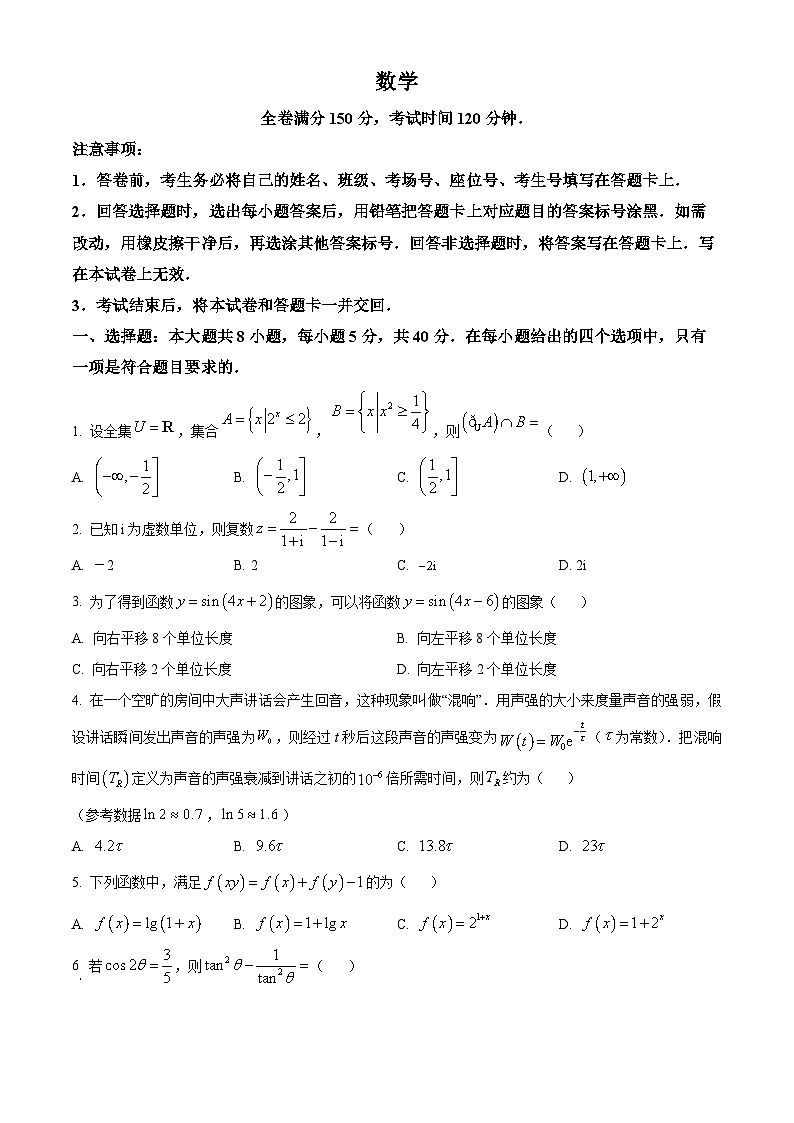 数学
全卷满分 150 分，考试时间 120 分钟．
注意事项：
1．答卷前，考生务必将自己的姓名、班级、考场号、座位号、考生号填写在答题卡上．
2．回答选择题时，选出每小题答案后，用铅笔把答题卡上对应题目的答案标号涂黑．如需
改动，用橡皮擦干净后，再选涂其他答案标号．回答非选择题时，将答案写在答题卡上．写
在本试卷上无效．
3．考试结束后，将本试卷和答题卡一并交回．
一、选择题：本大题共 8 小题，每小题 5 分，共 40 分．在每小题给出的四个选项中，只有
一项是符合题目要求的．
1. 设全集 U = R ，集合 A = {x | 2^x ≤ 2} ， B = {x | x² ≥ 1/4} ，则 (ð_U A) ∩ B = （ ）
A. (−∞, −1/2] B. (−1/2, 1] C. (1/2, 1] D. (1, +∞)
2. 已知 i 为虚数单位，则复数 z = 2/(1+i) − 2/(1−i) = （ ）
A. －2 B. 2 C. −2i D. 2i
3. 为了得到函数 y = sin(4x + 2) 的图象，可以将函数 y = sin(4x − 6) 的图象（ ）
A. 向右平移 8 个单位长度 B. 向左平移 8 个单位长度
C. 向右平移 2 个单位长度 D. 向左平移 2 个单位长度
4. 在一个空旷的房间中大声讲话会产生回音，这种现象叫做“混响”．用声强的大小来度量声音的强弱，假
设讲话瞬间发出声音的声强为 W₀ ，则经过 t 秒后这段声音的声强变为 W(t) = W₀e^(−t/τ) （ τ 为常数）．把混响
时间 (T_R) 定义为声音的声强衰减到讲话之初的 10⁻⁶ 倍所需时间，则 T_R 约为（ ）
（参考数据 ln 2 ≈ 0.7 ，ln 5 ≈ 1.6 ）
A. 4.2τ B. 9.6τ C. 13.8τ D. 23τ
5. 下列函数中，满足 f(xy) = f(x) + f(y) − 1 的为（ ）
A. f(x) = lg(1 + x) B. f(x) = 1 + lg x C. f(x) = 2^(1+x) D. f(x) = 1 + 2^x
6. 若 cos 2θ = 3/5 ，则 tan²θ − 1/tan²θ = （ ）